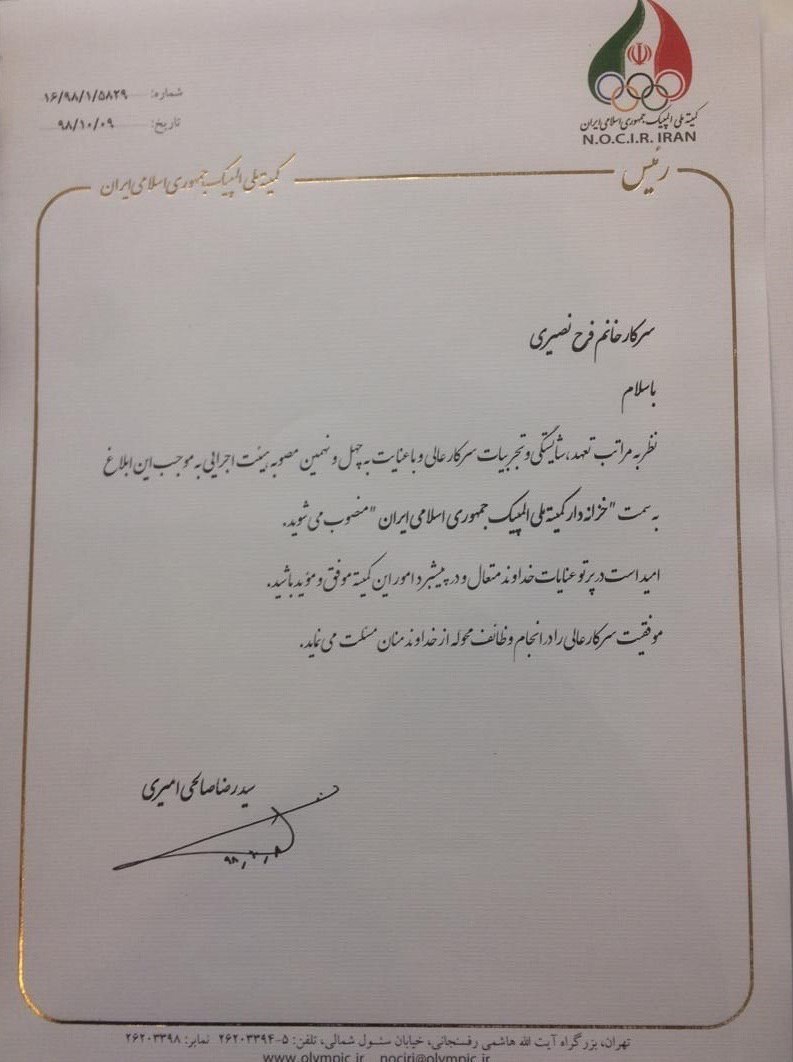 کمیته ملی المپیک جمهوری اسلامی ایران
N.O.C.I.R. IRAN
شماره: ۱۶/۹۸/۱/۵۸۲۹
تاریخ: ۹۸/۱۰/۰۹
رئیس
کمیته ملی المپیک جمهوری اسلامی ایران
سرکار خانم فرح نصیری
باسلام
نظر به مراتب تعهد، شایستگی و تجربیات سرکار عالی و با عنایت به چهل و نهمین مصوبه هیئت اجرایی به موجب این ابلاغ
به سمت "خزانه دار کمیته ملی المپیک جمهوری اسلامی ایران" منصوب می شوید.
امید است در پرتو عنایات خداوند متعال و در پیشبرد امور این کمیته موفق و مؤید باشید.
موفقیت سرکار عالی را در انجام وظائف محوله از خداوند منان مسئلت می نماید.
سید رضا صالحی امیری
تهران، بزرگراه آیت الله هاشمی رفسنجانی، خیابان سئول شمالی، تلفن: ۵-۲۶۲۰۳۳۹۴ نمابر: ۲۶۲۰۳۳۹۸
www.olympic.ir nociri@olympic.ir